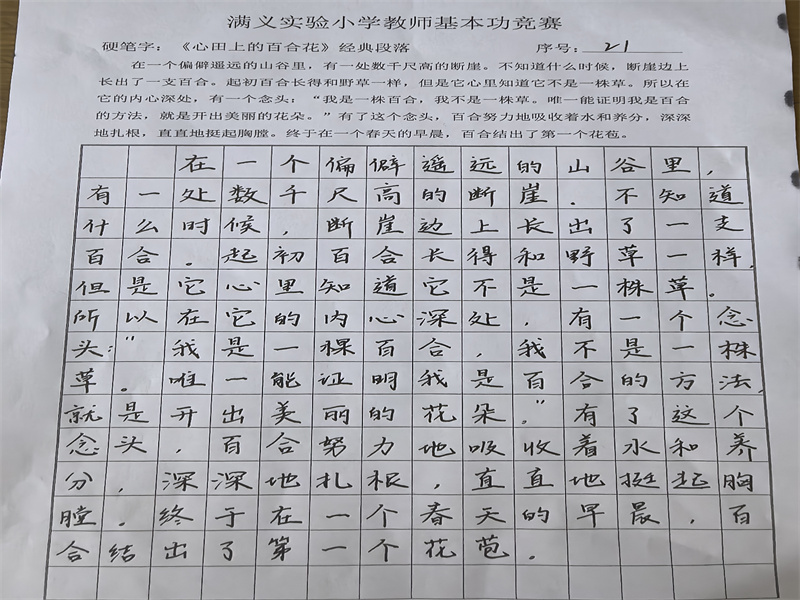 满义实验小学教师基本功竞赛
硬笔字：《心田上的百合花》经典段落 序号：21
在一个偏僻遥远的山谷里，有一处数千尺高的断崖。不知道什么时候，断崖边上
长出了一支百合。起初百合长得和野草一样，但是它心里知道它不是一株草。所以在
它的内心深处，有一个念头：“我是一株百合，我不是一株草。唯一能证明我是百合
的方法，就是开出美丽的花朵。”有了这个念头，百合努力地吸收着水和养分，深深
地扎根，直直地挺起胸膛。终于在一个春天的早晨，百合结出了第一个花苞。
在一个偏僻遥远的山谷里，
有一处数千尺高的断崖。不知道
什么时候，断崖边上长出了一支
百合。起初百合长得和野草一样，
但是它心里知道它不是一株草。
所以在它的内心深处，有一个念
头：“我是一棵百合，我不是一株
草。唯一能证明我是百合的方法，
就是开出美丽的花朵。”有了这个
念头，百合努力地吸收着水和养
分，深深地扎根，直直地挺起胸
膛。终于在一个春天的早晨，百
合结出了第一个花苞。